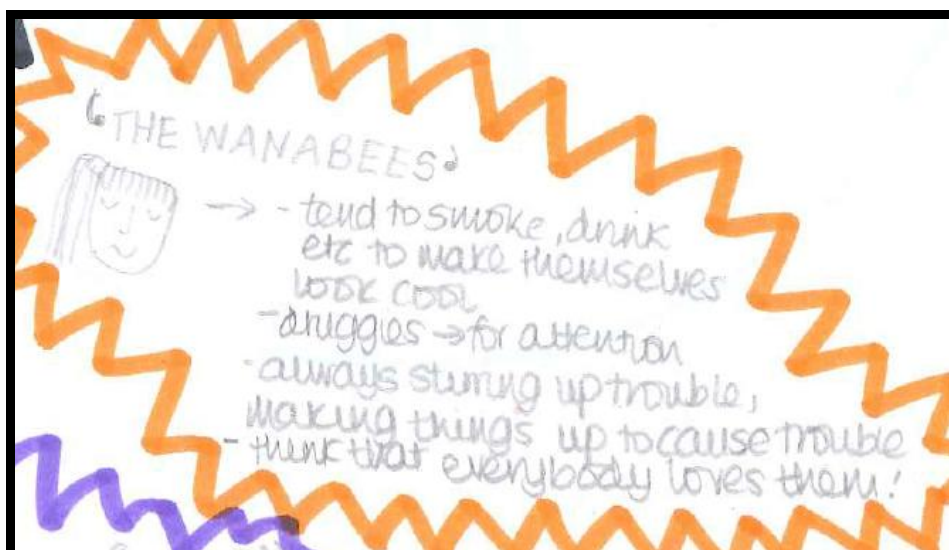 'THE WANABEES'
→ - tend to smoke, drink
etc to make themselves
look cool
- druggies → for attention
- always stirring up trouble,
making things up to cause trouble
- think that everybody loves them!